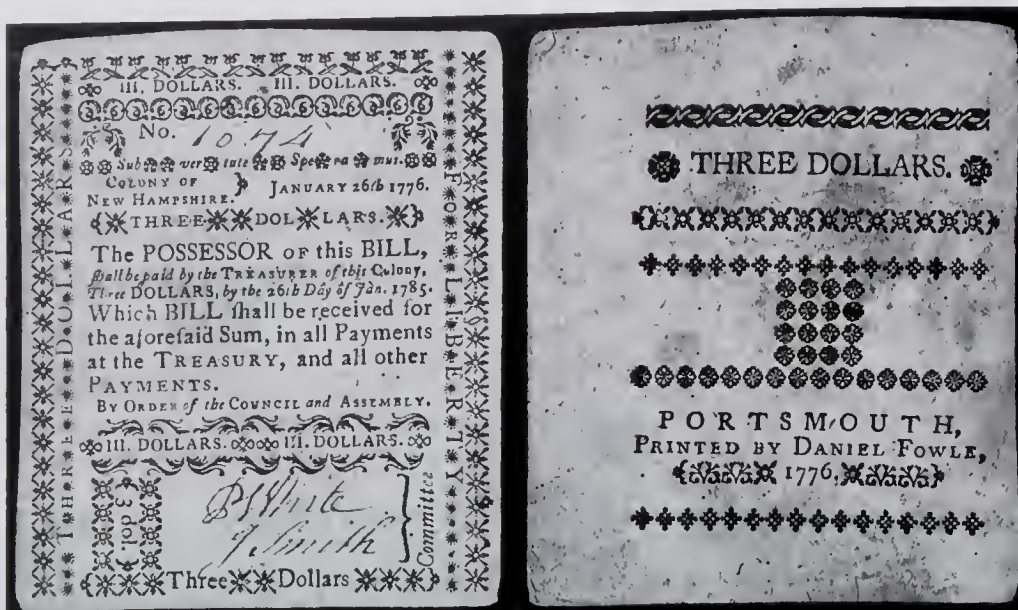 III. DOLLARS. III. DOLLARS.
No. 1074
Sub ver tute Spe ra mus.
COLONY OF
NEW HAMPSHIRE. } JANUARY 26th 1776.
THREE DOL LARS.
The POSSESSOR OF this BILL,
ſhall be paid by the TREASURER of this Colony,
Three DOLLARS, by the 26th Day of Jan. 1785.
Which BILL ſhall be received for
the aforeſaid Sum, in all Payments
at the TREASURY, and all other
PAYMENTS.
BY ORDER of the COUNCIL and ASSEMBLY.
III. DOLLARS. III. DOLLARS.
{ 3 dol. }
White
J Smith
} Committee
Three Dollars
THREE DOLLARS
FOR LIBERTY.
THREE DOLLARS.
PORTSMOUTH,
PRINTED BY DANIEL FOWLE,
1776.